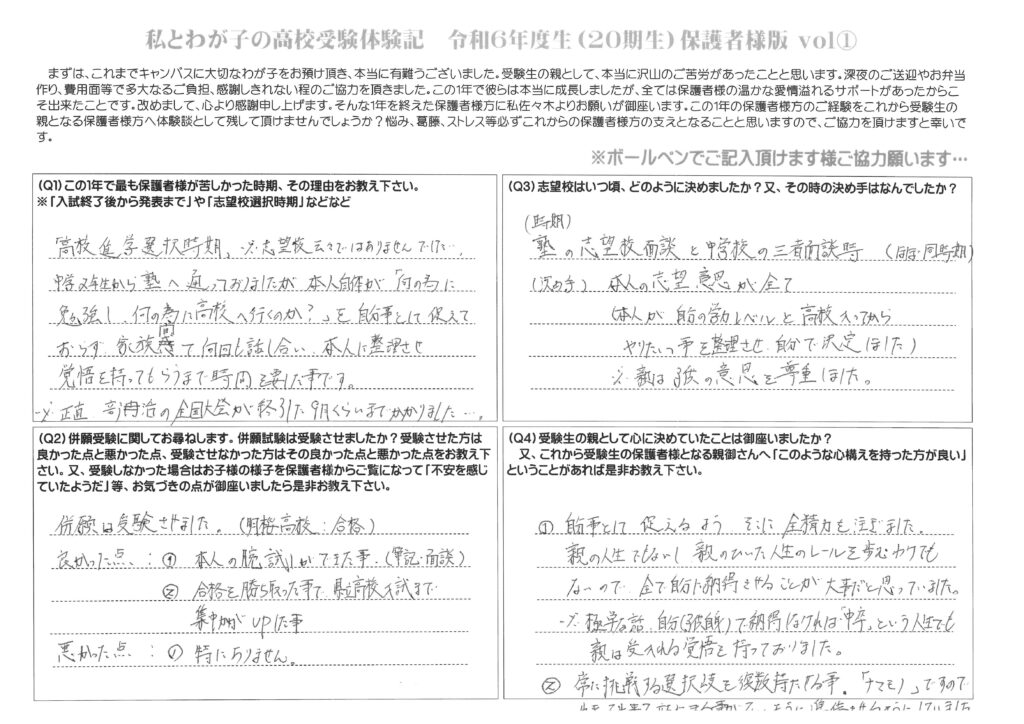 私とわが子の高校受験体験記　令和6年度生(20期生)保護者様版 vol①
まずは、これまでキャンパスに大切なわが子をお預け頂き、本当に有難うございました。受験生の親として、本当に沢山のご苦労があったことと思います。深夜のご送迎やお弁当
作り、費用面等で多大なるご負担、感謝しきれない程のご協力を頂きました。この1年で彼らは本当に成長しましたが、全ては保護者様の温かな愛情溢れるサポートがあったからこ
そ出来たことです。改めまして、心より感謝申し上げます。そんな1年を終えた保護者様方に私佐々木よりお願いが御座います。この1年の保護者様方のご経験をこれから受験生の
親となる保護者様方へ体験談として残して頂けませんでしょうか？悩み、葛藤、ストレス等必ずこれからの保護者様方の支えとなることと思いますので、ご協力を頂けますと幸いで
す。
※ボールペンでご記入頂けます様ご協力願います…
(Q1)この1年で最も保護者様が苦しかった時期、その理由をお教え下さい。
※「入試終了後から発表まで」や「志望校選択時期」などなど
高校進学選択時期、※志望校云々ではありませんでした…。
中学2年生から塾へ通っておりましたが本人自体が「何の為に
勉強し、何の為に高校へ行くのか？」を自分事として捉えて
おらず、家族間で何回も話し合い、本人に整理させ
覚悟を持ってもらうまで時間を要した事です。
※正直、部活の全国大会が終了した9月くらいまでかかりました…。
(Q2)併願受験に関してお尋ねします。併願試験は受験させましたか？受験させた方は
良かった点と悪かった点、受験させなかった方はその良かった点と悪かった点をお教え下
さい。又、受験しなかった場合はお子様の様子を保護者様からご覧になって「不安を感じ
ていたようだ」等、お気づきの点が御座いましたら是非お教え下さい。
併願は受験させました。(明桜高校：合格)
良かった点：① 本人の腕試しができた事。(筆記・面談)
② 合格を勝ち取った事で県立高校入試まで
集中力がupした事
悪かった点：① 特にありません。
(Q3)志望校はいつ頃、どのように決めましたか？又、その時の決め手はなんでしたか？
(時期)
塾の志望校面談と中学校の三者面談時(ほぼ同時期)
(決め手)本人の志望意思が全て
(本人が自分の学力レベルと高校入ってから
やりたい事を整理させ、自分で決定しました)
※親は子供の意思を尊重しました。
(Q4)受験生の親として心に決めていたことは御座いましたか？
又、これから受験生の保護者様となる親御さんへ「このような心構えを持った方が良い」
ということがあれば是非お教え下さい。
① 自分事として捉えるよう そこに全精力を注ぎました。
親の人生でもないし 親のひいた人生のレールを歩むわけでも
ないので、全て自分で納得させることが大事だと思っていました。
※極端な話、自分(子供自身)で納得しなければ「中卒」という人生でも
親は受け入れる覚悟を持っておりました。
② 常に挑戦する選択肢を複数持たせる事。「ナマモノ」ですので